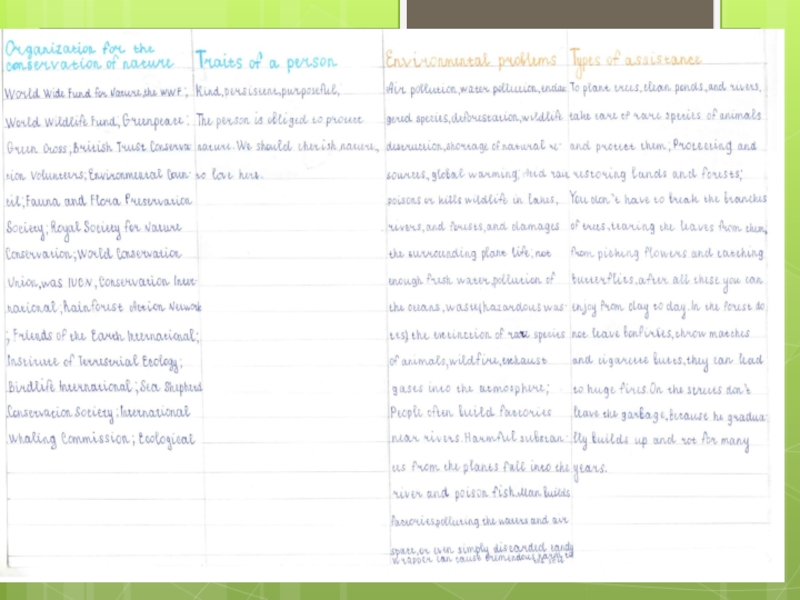 Organization for the
conservation of nature
World Wide Fund for Nature, the WWF;
World Wildlife Fund, Greenpeace;
Green Cross, British Trust Conserva-
tion Volunteers; Environmental Coun-
cil; Fauna and Flora Preservation
Society; Royal Society for Nature
Conservation; World Conservation
Union, was IUCN, Conservation Inter-
national; Rainforest Action Network
; Friends of the Earth International;
Institute of Terrestrial Ecology;
Birdlife International; Sea Shepherd
Conservation Society; International
Whaling Commission; Ecological
Traits of a person
Kind, persistent, purposeful;
The person is obliged to protect
nature. We should cherish nature,
to love here.
Environmental problems
Air pollution, water pollution, endan
gered species, deforestation, wildlife
destruction, shortage of natural re-
sources, global warming; Acid rain
poisons or kills wildlife in lakes,
rivers, and forests, and damages
the surrounding plant life; not
enough fresh water, pollution of
the oceans, waste(hazardous was-
tes) the extinction of rare species
of animals, wildfire, exhaust
gases into the atmosphere;
People often build factories
near rivers. Harmful substan-
ces from the plants fall into the
river and poison fish. Man builds
factories, polluting the waters and air
space, or even simply discarded candy
wrapper can cause tremendous
Types of assistance
To plant trees, clean ponds, and rivers,
take care of rare species of animals
and protect them; Protecting and
restoring lands and forests;
You don't have to break the branches
of trees, tearing the leaves from them,
from picking flowers and catching
butterflies, after all these you can
enjoy from day to day. In the forest do
not leave bonfires, throw matches
and cigarette butts, they can lead
to huge fires. On the streets don't
leave the garbage. Because he gradua-
lly builds up and rot for many
years.